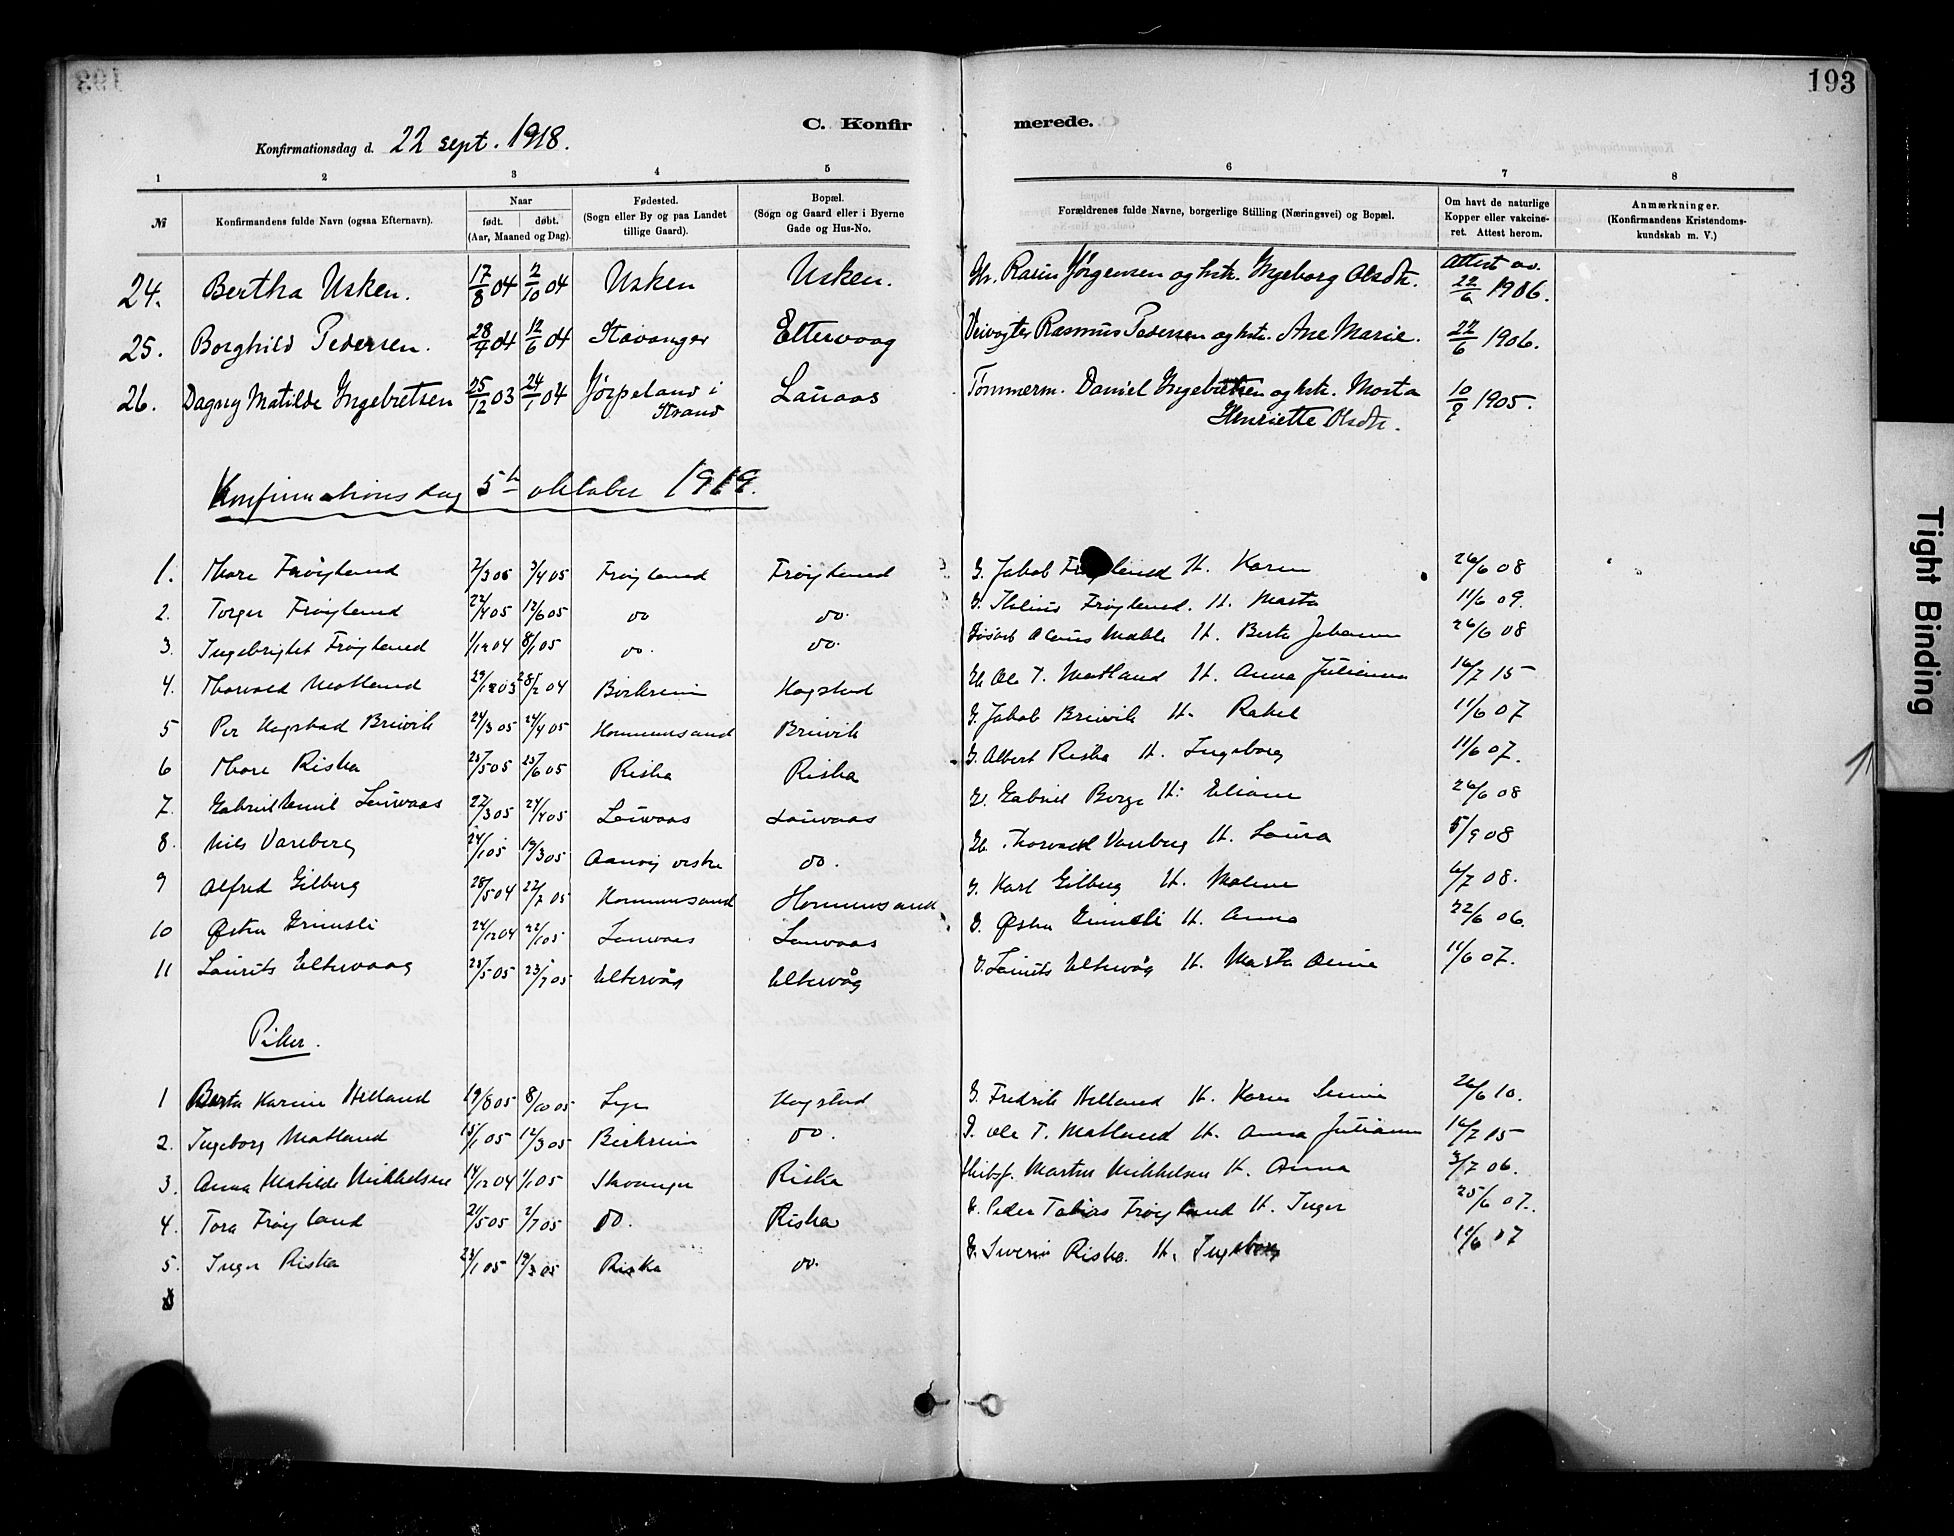 193
C. Konfirmerede.
Konfirmationsdag d. 22 sept. 1918.
1 2 3 4 5 6 7 8
№ Konfirmandens fulde Navn (ogsaa Efternavn). Naar født. døbt. (Aar, Maaned og Dag). Fødested. (Sogn eller By og paa Landet tillige Gaard). Bopæl. (Sogn og Gaard eller i Byerne Gade og Hus-No. Forældrenes fulde Navne, borgerlige Stilling (Næringsvei) og Bopæl. Om havt de naturlige Kopper eller vakcineret. Attest herom. Anmærkninger. (Konfirmandens Kristendomskundskab m. V.)
24. Bertha Usken. 17/8 04 2/10 04 Usken Usken. Rasm Jørgensen og hstr. Ingeborg Olsdtr. Attest av. 22/6 1906.
25. Borghild Pedersen. 28/4 04 12/6 04 Stavanger Eltervaag Veivogter Rasmus Pedersen og hstr. Ane Marie. 22/6 1906.
26. Dagny Matilde Ingebretsen 25/12 03 24/1 04 Jørpeland i Strand Lauaas Tømmerm. Daniel Ingebretsen og hstr. Marta Henriette Olsdtr. 10/7 1905.
Konfirmationsdag 5te oktober 1919.
1. Thore Frøyland 2/3 05 3/4 05 Frøyland Frøyland G. Jakob Frøyland H. Karen 26/6 08
2. Torger Frøyland 22/4 05 12/6 05 do do. G. Frøyland. H. Marta 11/6 09.
3. Ingebrigt Frøyland 1/12 04 8/1 05 do. do. H. Berta Johanne 26/6 08
4. Thorvald Matland 29/12 03 28/2 04 Birkreim Hogstad Ole T. Matland H. Anna Julianna 16/7 15
5 Per Hogstad Breivik 24/3 05 24/4 05 Hommersand Breivik G. Jakob Breivik H. Rakel 11/6 07
6 Thore Riska 25/5 05 25/6 05 Riska Riska G. Albert Riska H. Ingeborg 11/6 07.
7. Gabriel Emil Lauvaas 22/3 05 24/4 05 Lauvaas Lauvaas G. Gabriel Borge H. Eliane 26/6 08
8. Nils Vareberg 24/1 05 19/3 05 do. Thorvald Vareberg H. Laura 5/9 08
9 Alfred Gilberg 28/5 04 22/7 05 Hommersand Hommersand G. Karl Gilberg H. Malene 6/7 08.
10 Østen Grimsli 24/12 04 22/1 05 Lauvaas Lauvaas G. Østen Grimsli H. Anna 22/6 06.
11 Laurits Eltervaag 28/5 05 23/7 05 Eltervåg Eltervåg G. Laurits Eltervåg H. Marta 11/6 07.
Piker.
1 Berta Karine Helland 19/8 05 8/10 05 Hogstad G. Fredrik Helland H. Karen 26/6 10.
2. Ingeborg Matland 15/1 05 12/3 05 Birkreim do. G. Ole T. Matland H. Anna Julianna 16/7 15
3. Anna Matilde Mikkelsen 14/12 04 1/1 05 Stavanger Riska Martin Mikkelsen H. Anna 3/7 06.
4. Tora Frøyland 21/5 05 2/7 05 do. Riska G. Peder Tobias Frøyland H. Inger 25/6 07.
5. Inger Riska 23/1 05 19/3 05 Riska do. G. Severin Riska. H. Ingeborg 11/6 07
Tight Binding